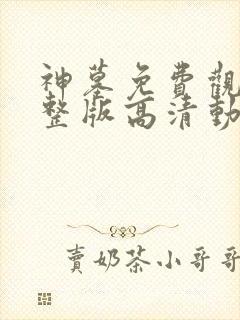 神墓免費觀
整版高清動
賣奶茶小哥哥